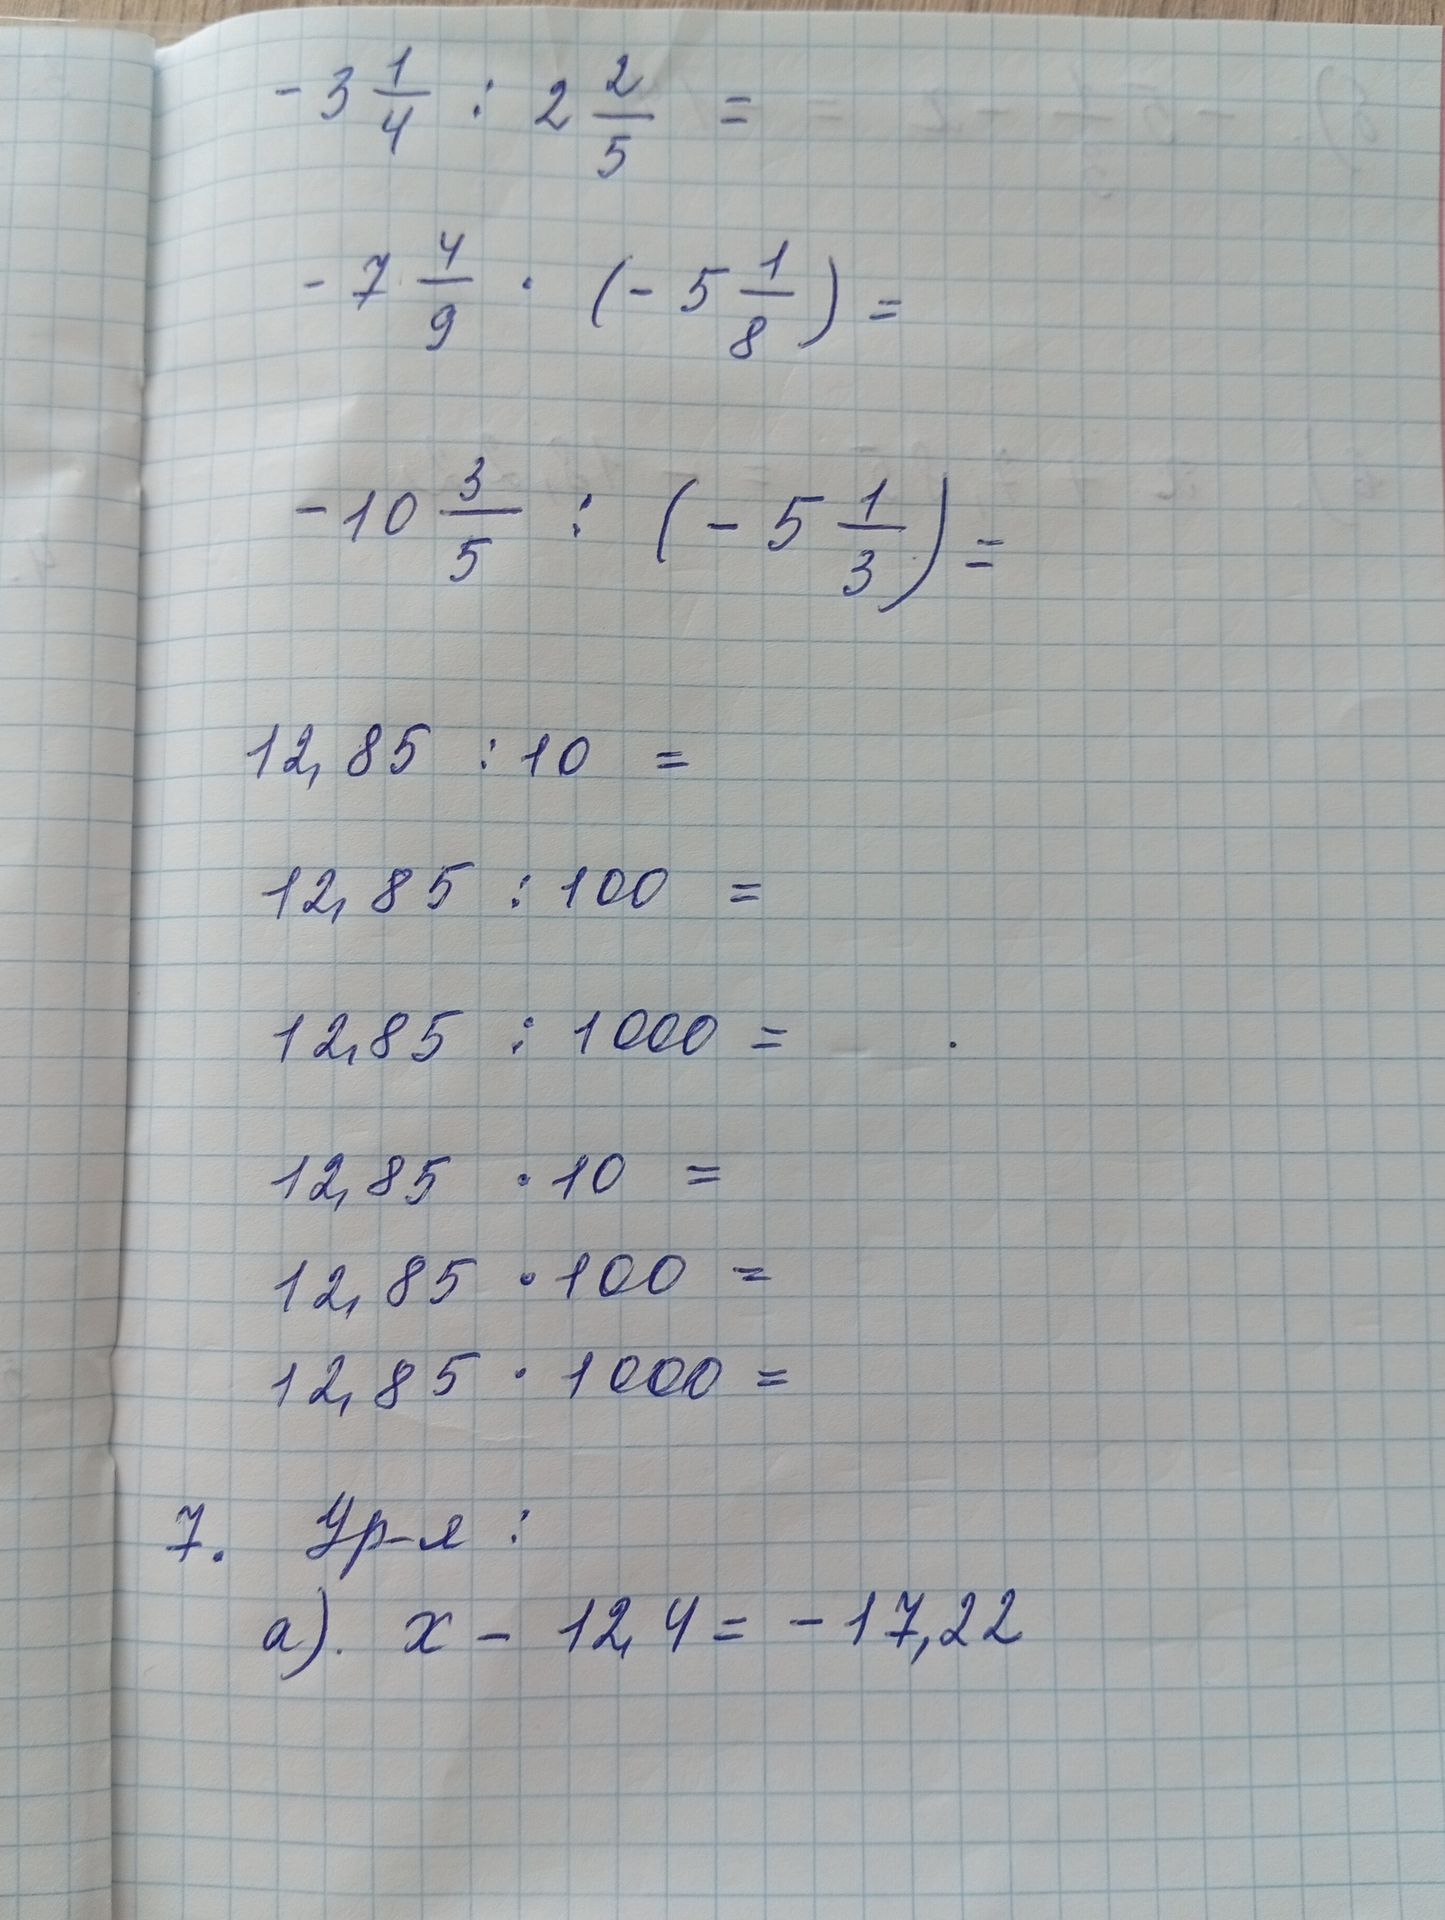 -3 1/4 : 2 2/5 =
-7 4/9 · (-5 1/8) =
-10 3/5 : (-5 1/3) =
12,85 : 10 =
12,85 : 100 =
12,85 : 1000 =
12,85 · 10 =
12,85 · 100 =
12,85 · 1000 =
7. Ур-я :
а). x - 12,4 = -17,22